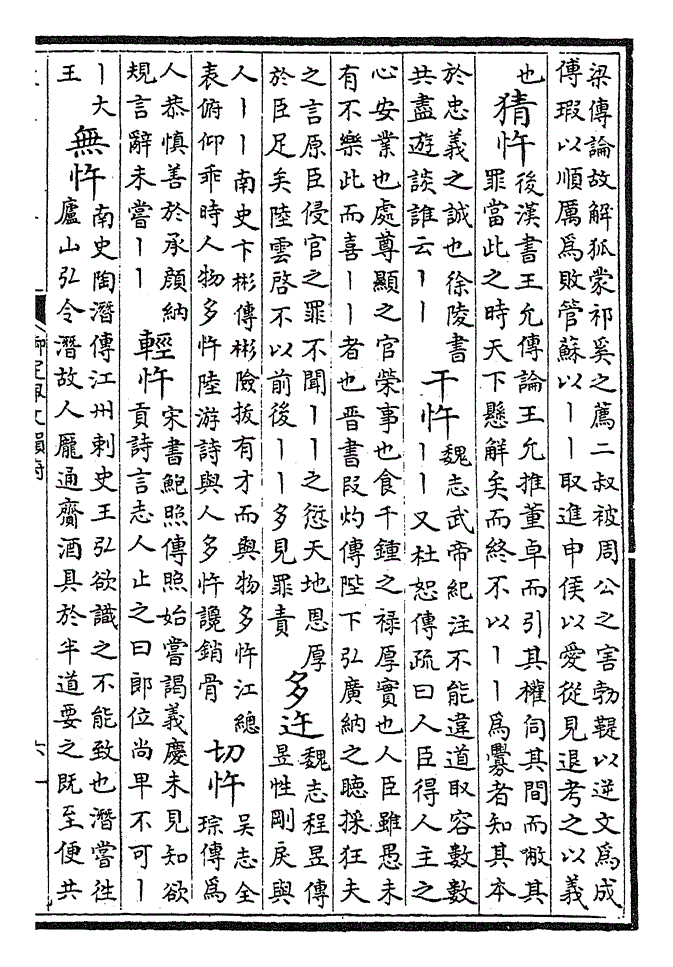 梁傳論故解狐蒙祁奚之薦二叔被周公之害勃鞮以逆文爲成
傅瑕以順厲爲敗管蘇以丨丨取進申侯以愛從見退考之以義
也
猜忤
後漢書王允傳論王允推董卓而引其權伺其間而敝其
罪當此之時天下懸解矣而終不以丨丨爲釁者知其本
於忠義之誠也徐陵書
共盡遊談誰云丨丨
干忤
魏志武帝紀注不能違道取容數數
丨丨又杜恕傳疏曰人臣得人主之
心安業也處尊顯之官榮事也食千鍾之禄厚實也人臣雖愚未
有不樂此而喜丨丨者也晉書段灼傳陛下弘廣納之聽採狂夫
之言原臣侵官之罪不聞丨丨之愆天地恩厚
於臣足矣陸雲啓不以前後丨丨多見罪責
多迕
魏志程昱傳
昱性剛戾與
人丨丨南史卞彬傳彬險拔有才而與物多忤江總
表俯仰乖時人物多忤陸游詩與人多忤讒銷骨
切忤
吳志全
琮傳爲
人恭慎善於承顔納
規言辭未嘗丨丨
輕忤
宋書鮑照傳照始嘗謁義慶未見知欲
貢詩言志人止之曰郎位尚卑不可丨
丨大
王
無忤
南史陶潛傳江州刺史王弘欲識之不能致也潛嘗往
廬山弘令潛故人龎通齎酒具於半道要之既至便共